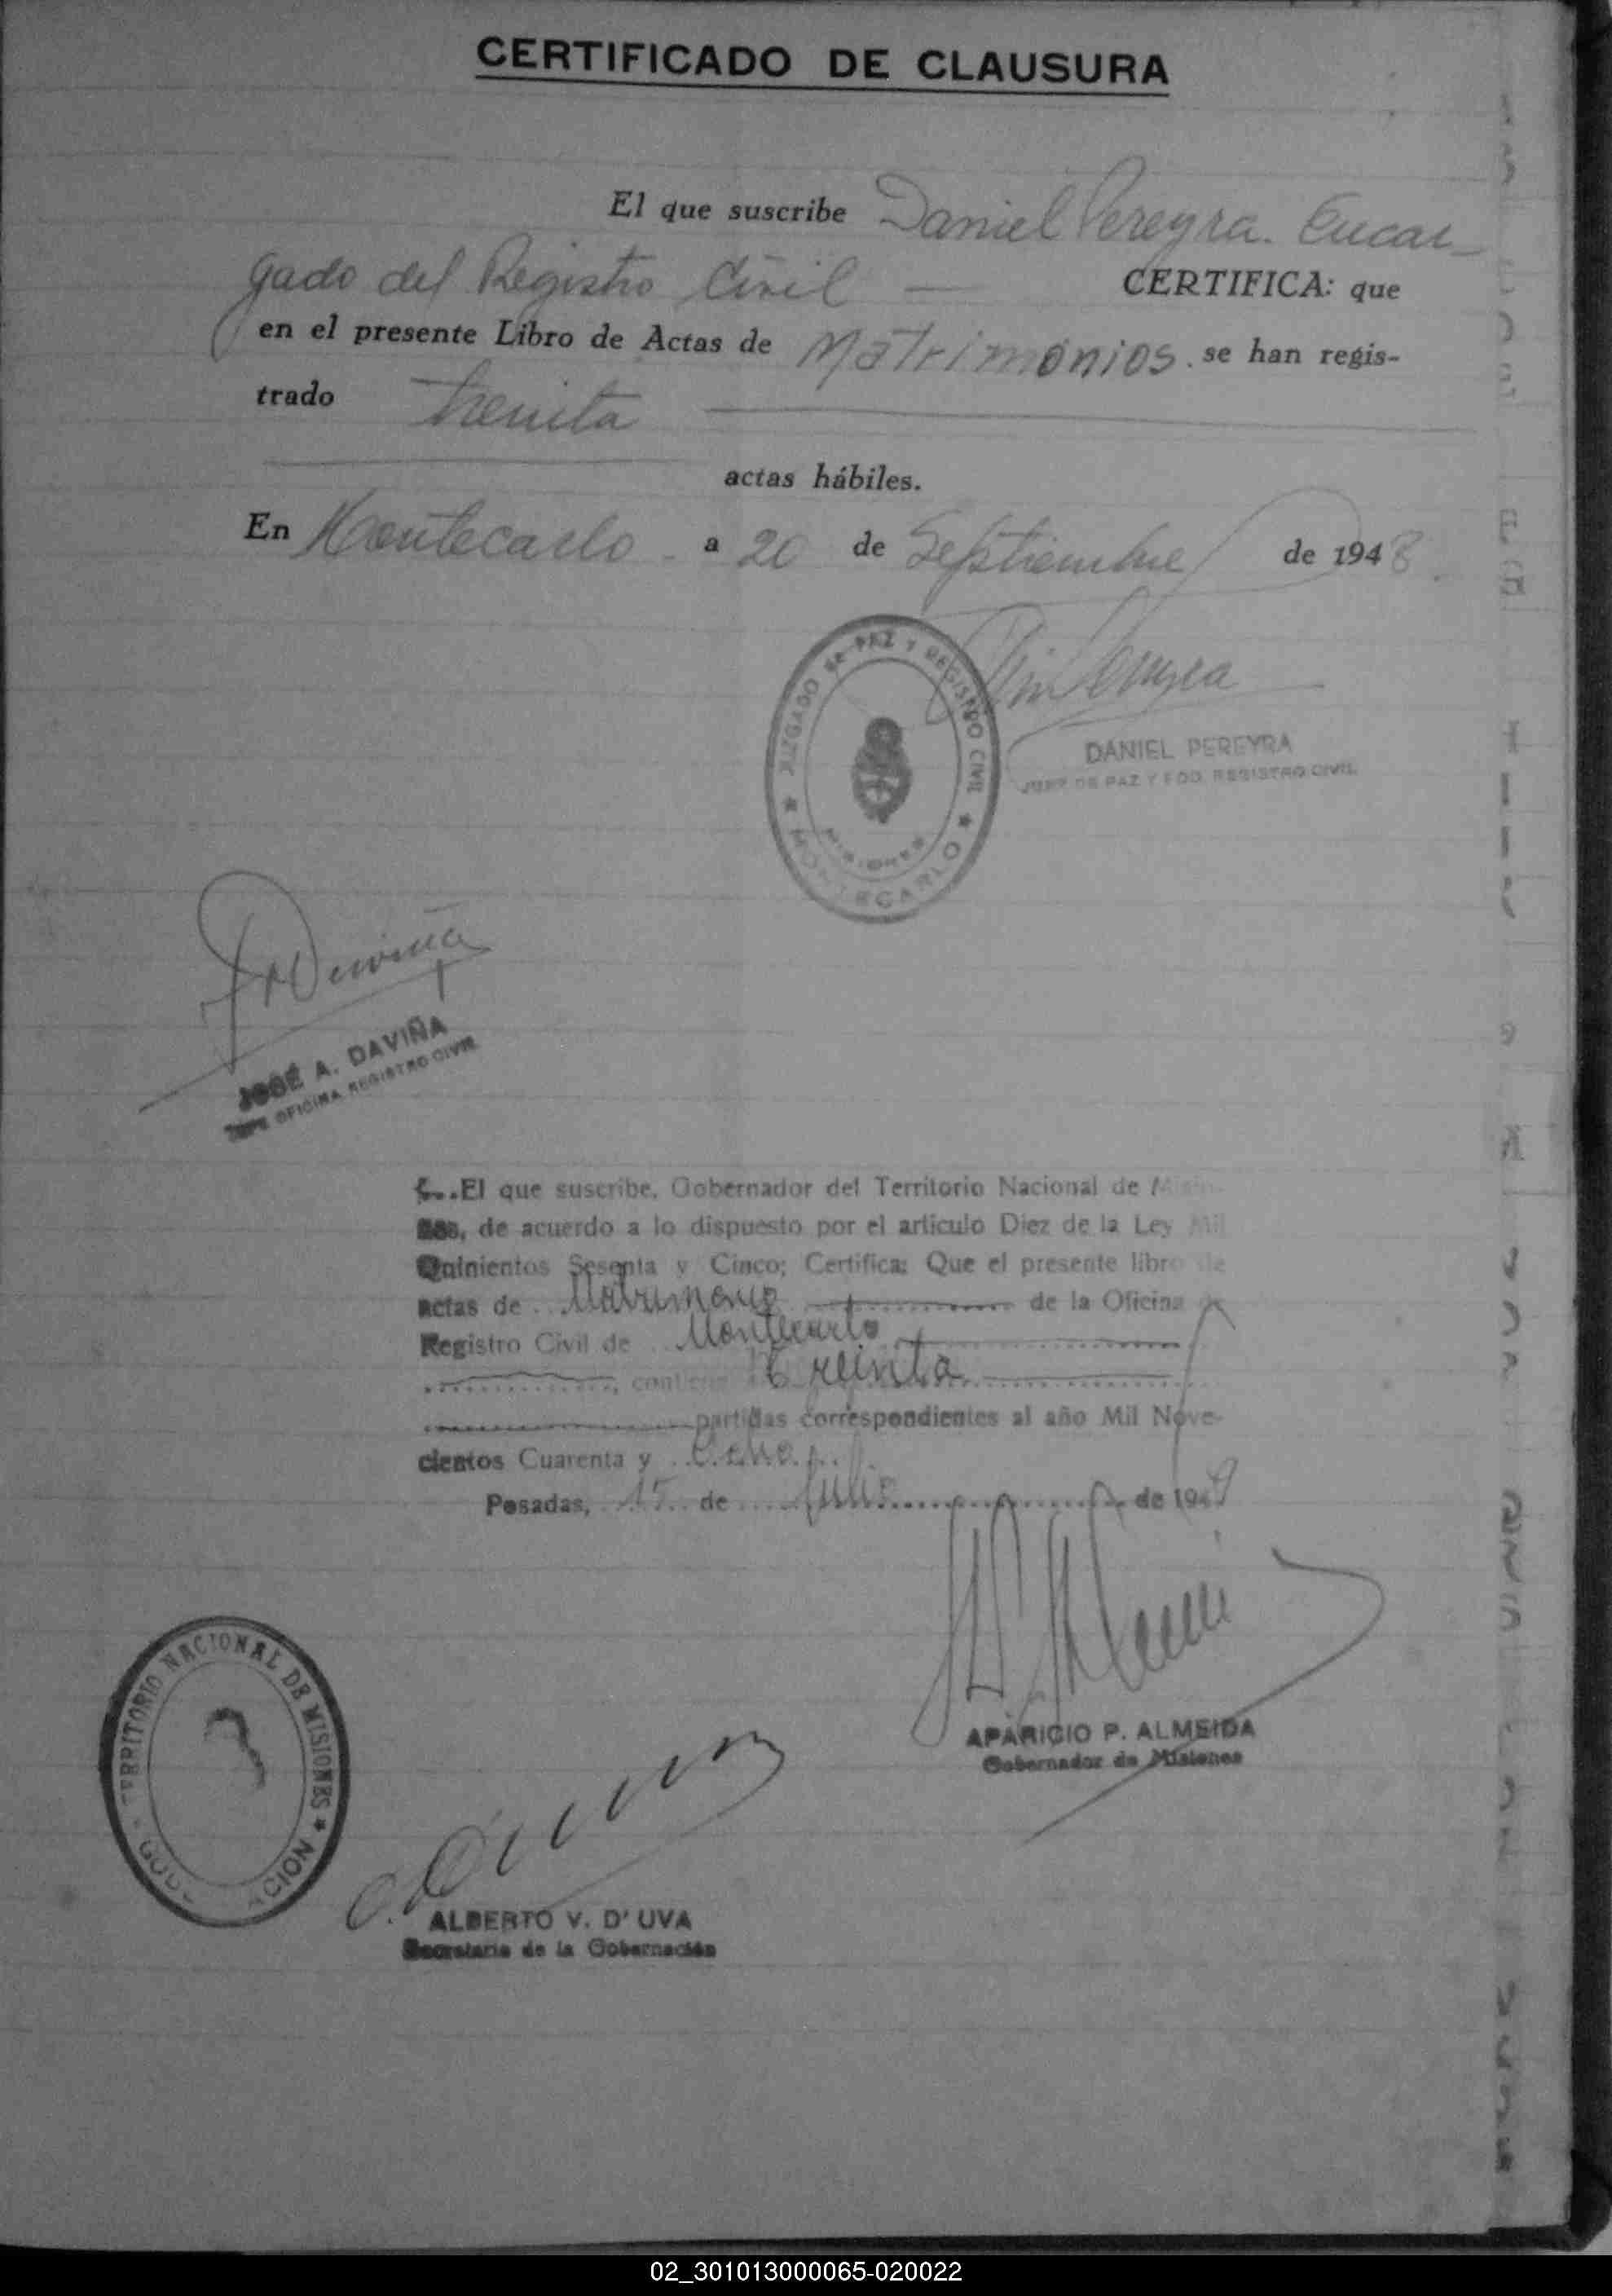 CERTIFICADO DE CLAUSURA
El que suscribe Daniel Pereyra. Encar-
gado del Registro Civil — CERTIFICA: que
en el presente Libro de Actas de Matrimonios. se han regis-
trado treinta
actas hábiles.
En Montecarlo a 20 de Septiembre de 1948.
JUZGADO de PAZ Y REGISTRO CIVIL
MISIONES
★ MONTECARLO ★
DANIEL PEREYRA
JUEZ DE PAZ Y EDO. REGISTRO CIVIL
JOSÉ A. DAVIÑA
JEFE OFICINA REGISTRO CIVIL
El que suscribe, Gobernador del Territorio Nacional de Misio-
nes, de acuerdo a lo dispuesto por el artículo Diez de la Ley Mil
Quinientos Sesenta y Cinco; Certifica: Que el presente libro de
actas de Matrimonio de la Oficina de
Registro Civil de Montecarlo
contiene treinta
partidas correspondientes al año Mil Nove-
cientos Cuarenta y Ocho.
Posadas, 15 de Julio de 1949
TERRITORIO NACIONAL DE MISIONES ★
APARICIO P. ALMEIDA
Gobernador de Misiones
ALBERTO V. D'UVA
Secretario de la Gobernación
02_301013000065-020022